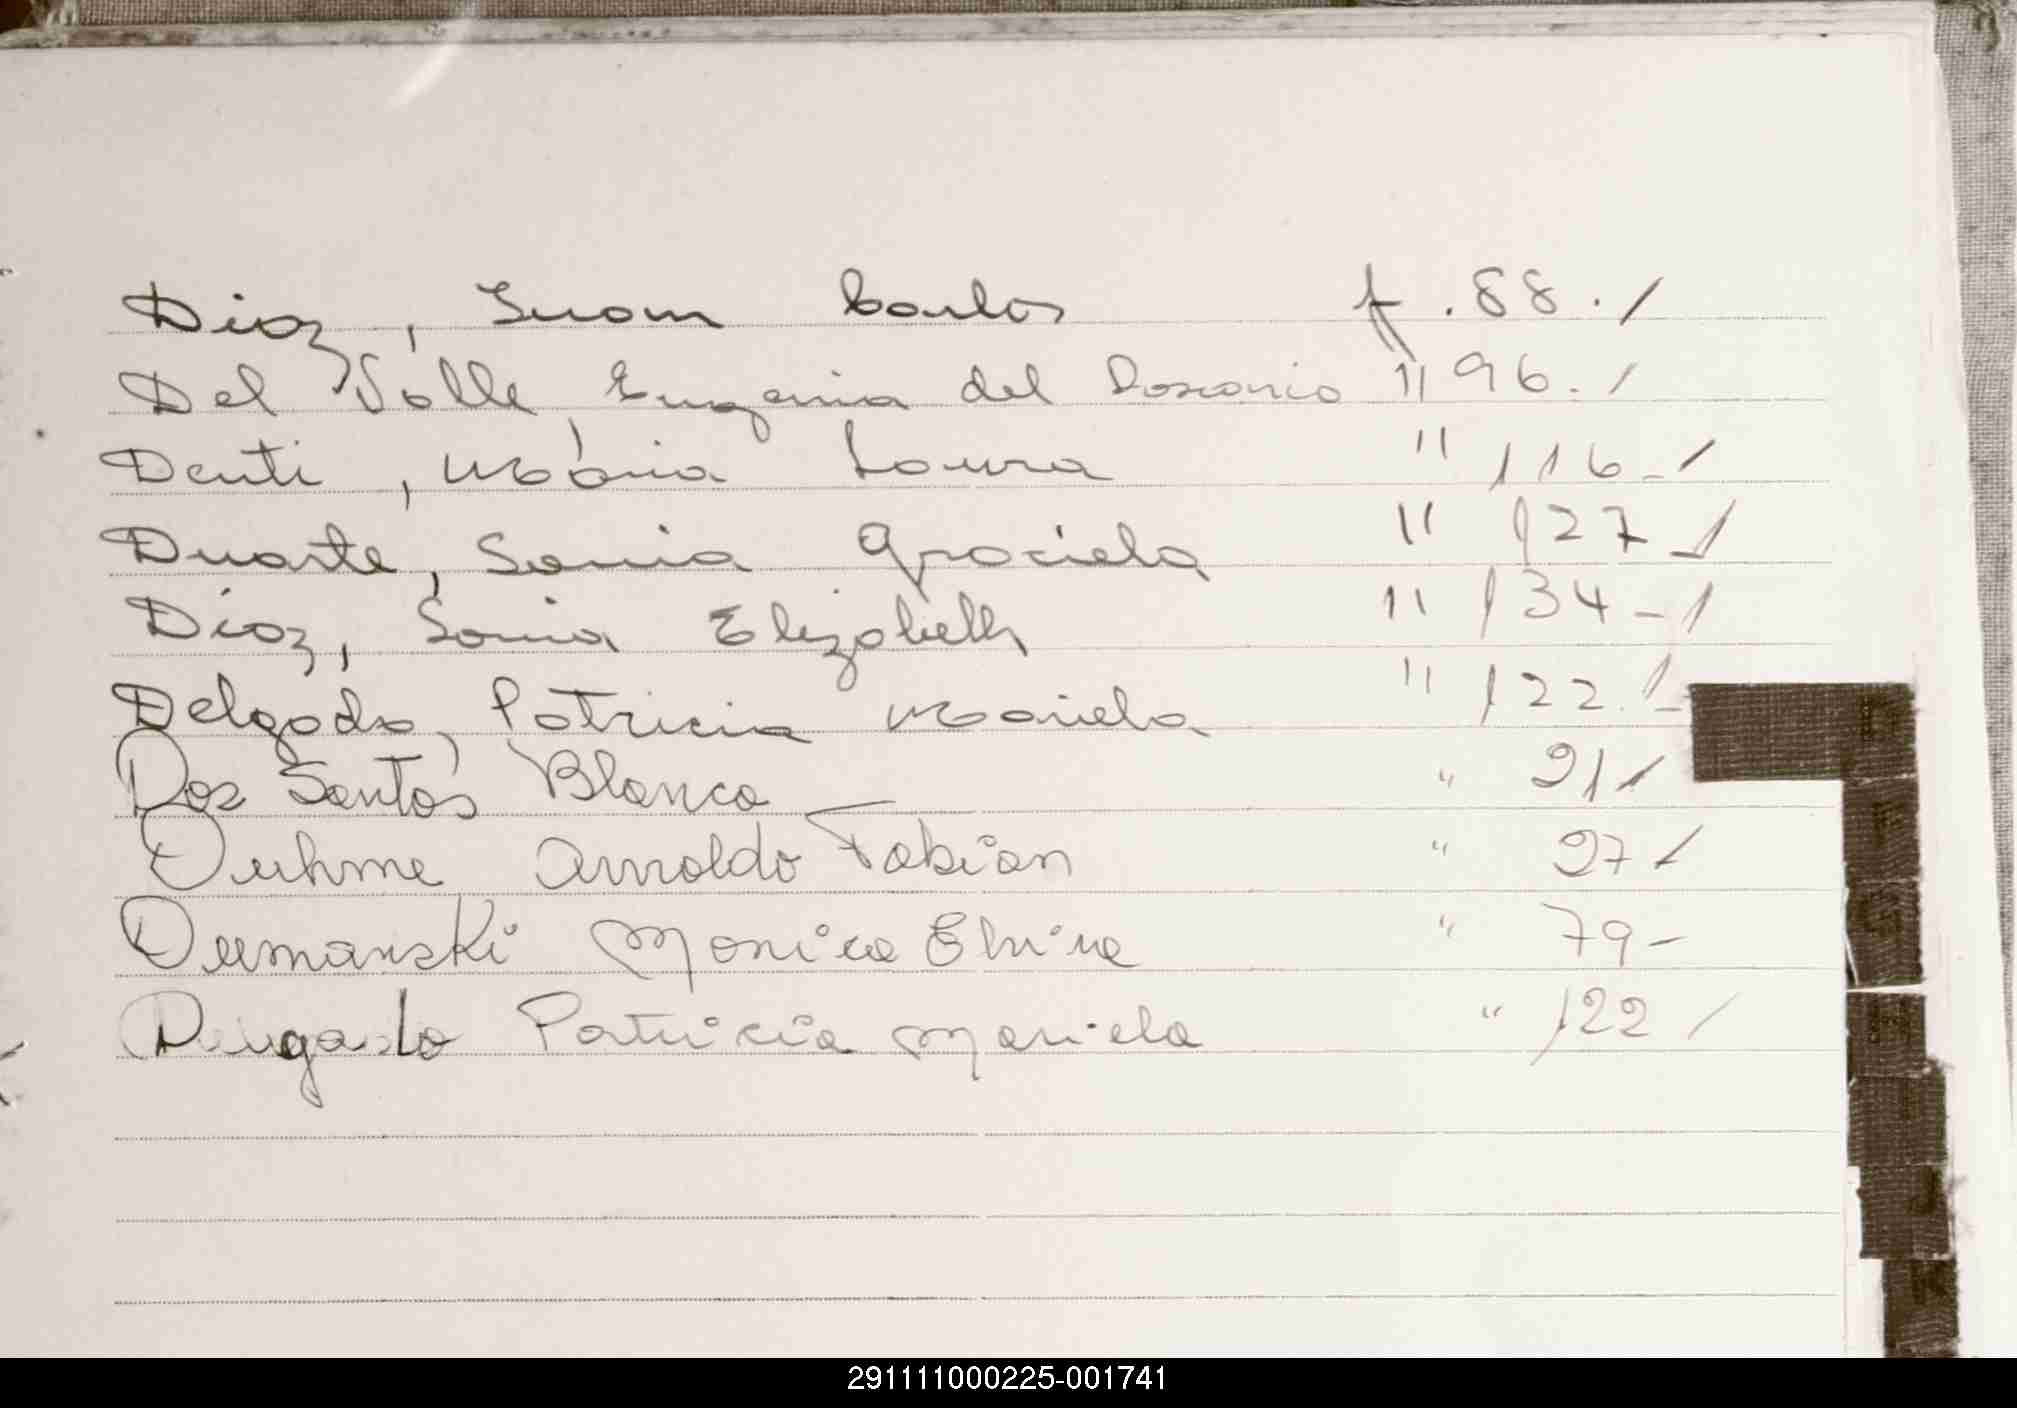 Diaz, Juan Carlos f. 88. /
Del Valle, Eugenia del Rosario " 96. /
Denti, María Laura " 116 - /
Duarte, Sonia Graciela " 127 - /
Diaz, Sonia Elizabeth " 134 - /
Delgado, Patricia Mariela " 122. / -
Dos Santos Blanca — " 91 /
Duhme Arnoldo Fabian " 97 /
Dumanski Monica Elvira " 79 -
Patricia Mariela " 122 /
291111000225-001741